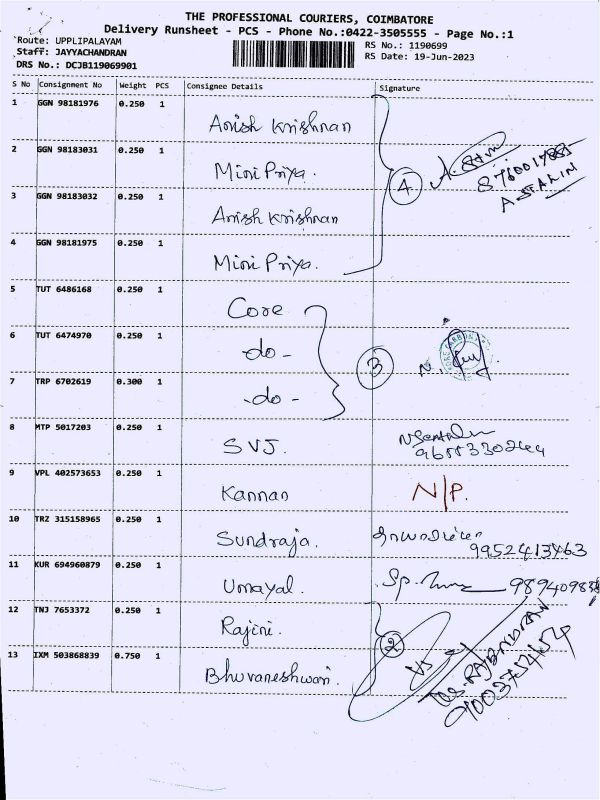 THE PROFESSIONAL COURIERS, COIMBATORE
Delivery Runsheet - PCS - Phone No.:0422-3505555 - Page No.:1
Route: UPPLIPALAYAM
RS No.: 1190699
Staff: JAYYACHANDRAN
RS Date: 19-Jun-2023
DRS No.: DCJB119069901
S No Consignment No Weight PCS Consignee Details Signature
1 GGN 98181976 0.250 1 Anish Krishnan
2 GGN 98183031 0.250 1 Mini Priya.
3 GGN 98183032 0.250 1 Anish Krishnan
4 GGN 98181975 0.250 1 Mini Priya.
4
A STALIN
5 TUT 6486168 0.250 1 Core
6 TUT 6474970 0.250 1 -do-
7 TRP 6702619 0.300 1 -do-
3
8 MTP 5017203 0.250 1 SVJ.
9 VPL 402573653 0.250 1 Kannan N/P.
10 TRZ 315158965 0.250 1 Sundraja. 9952413463
11 KUR 694960879 0.250 1 Umayal.
12 TNJ 7653372 0.250 1 Rajini.
13 IXM 503868839 0.750 1 Bhuvaneshwari.
2